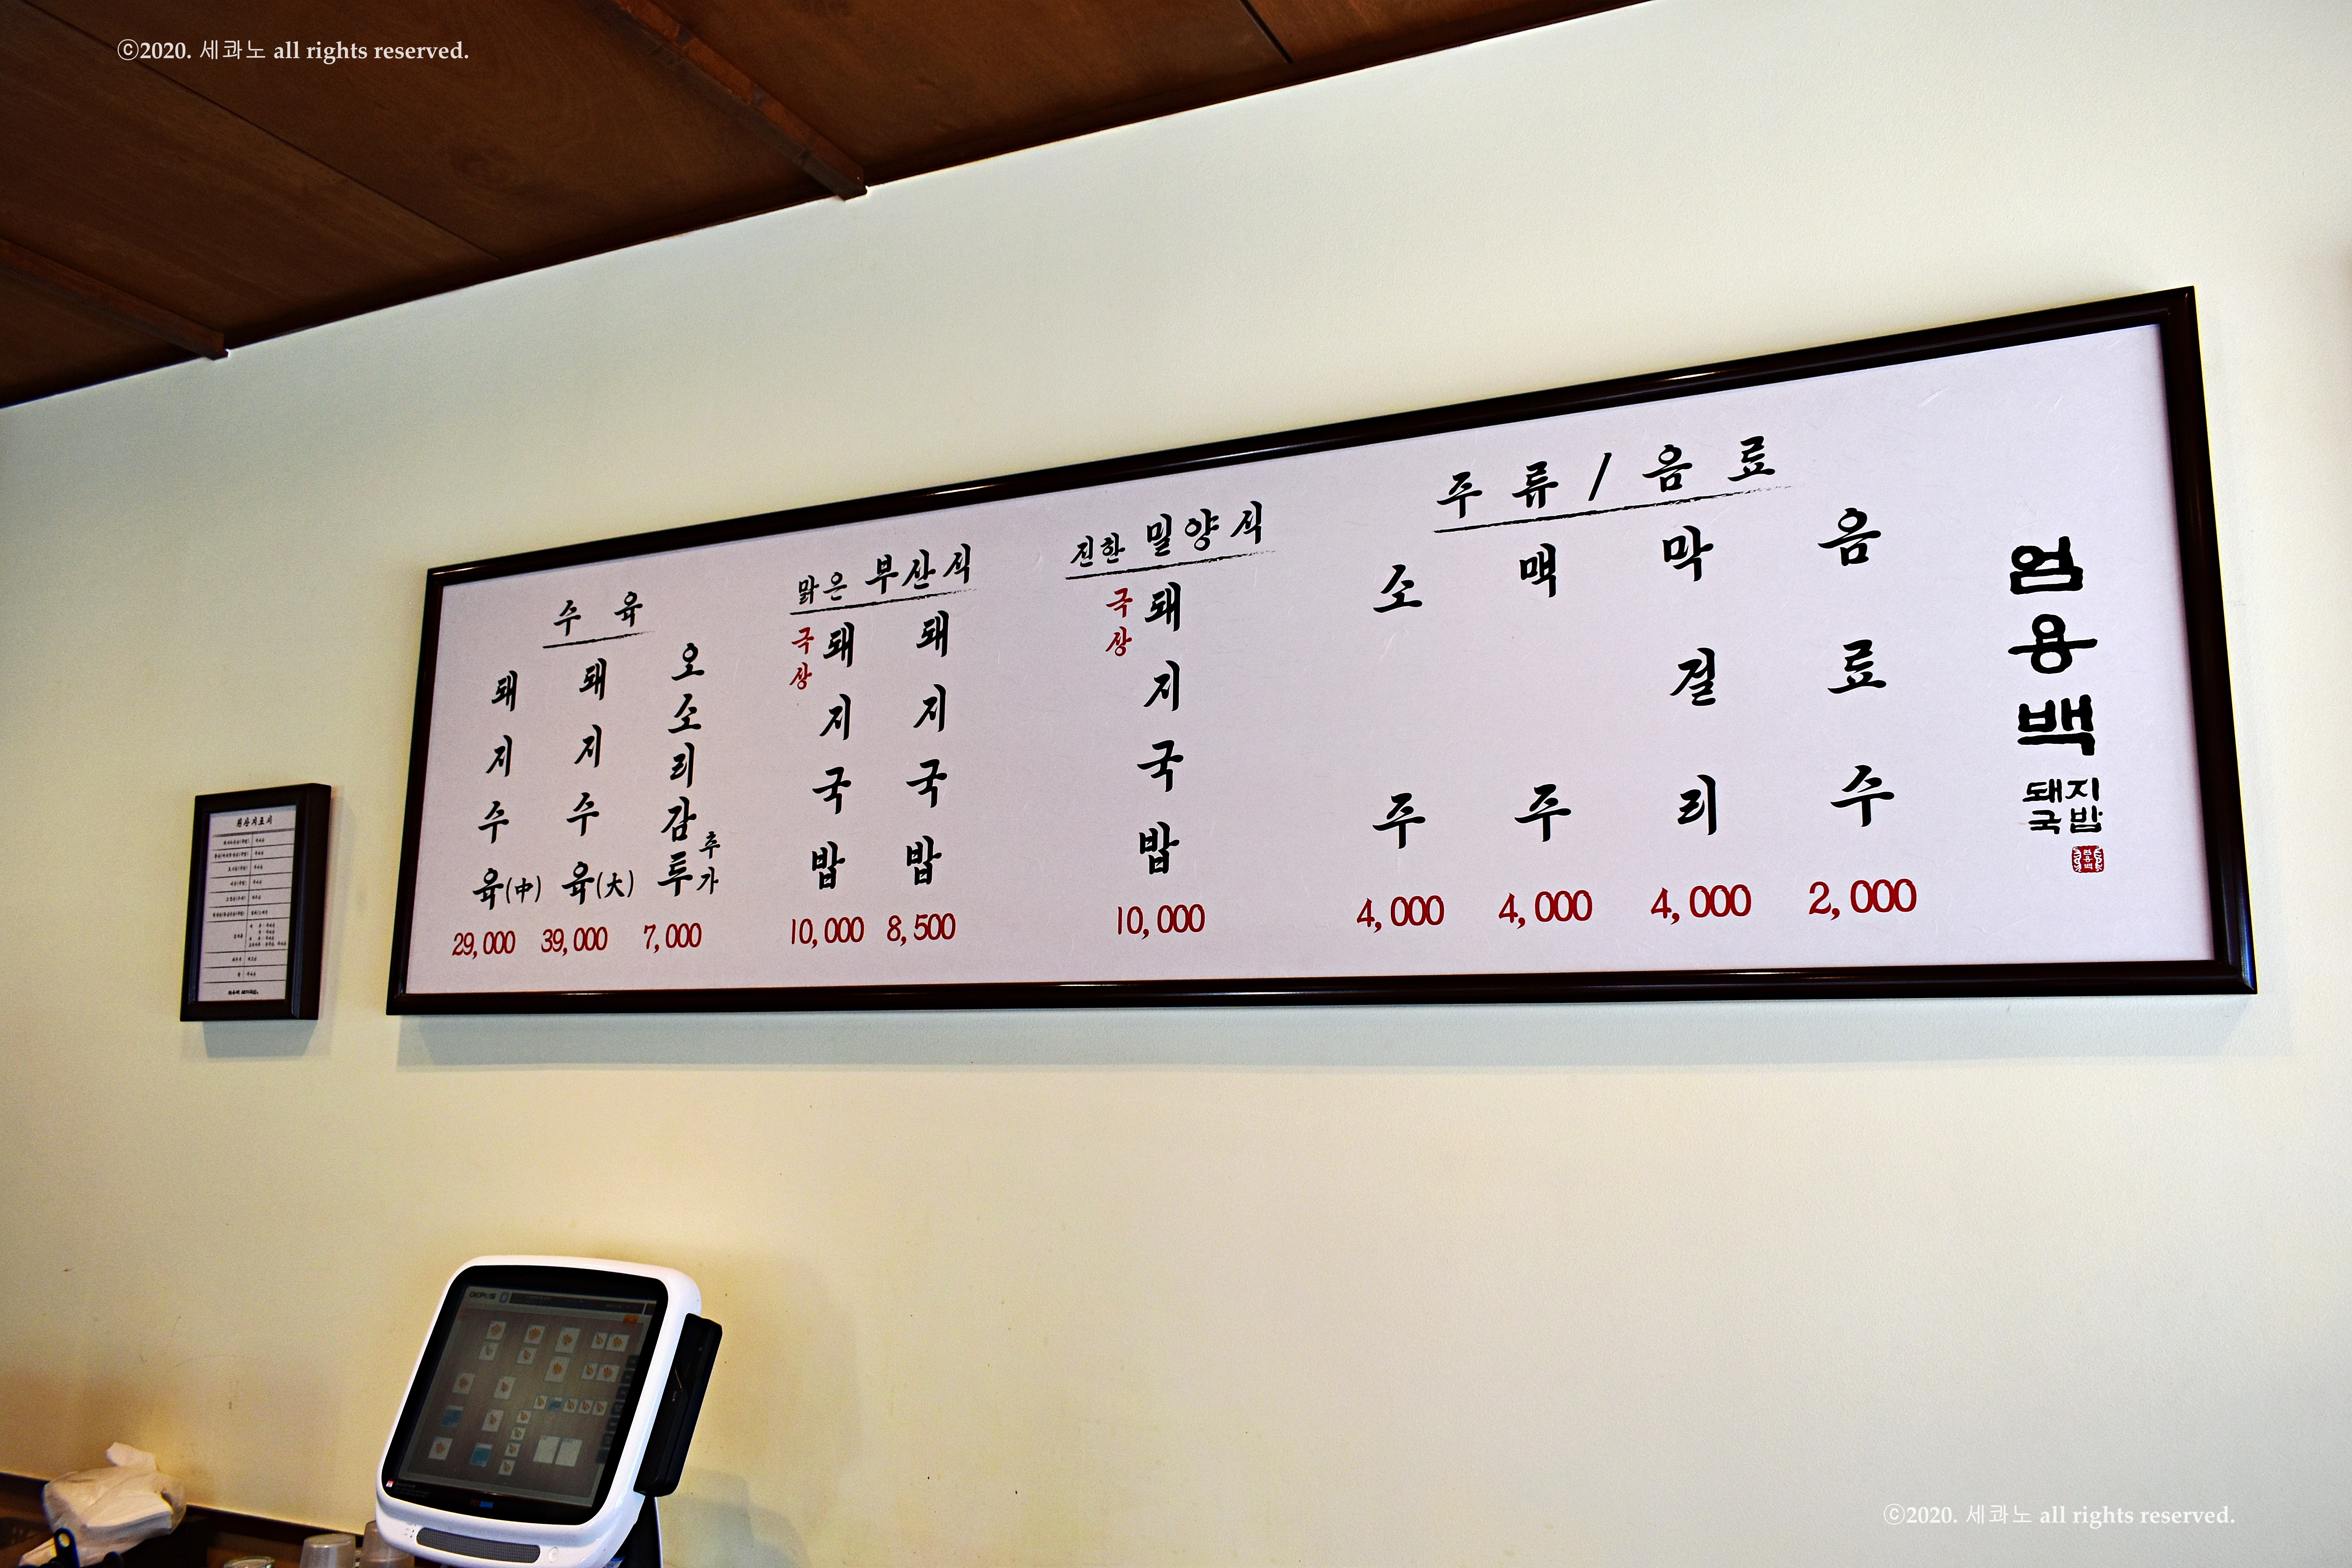 ⓒ2020. 세콰노 all rights reserved.
수육
돼지수육(中)
29,000
돼지수육(大)
39,000
오소리감투 추가
7,000
맑은 부산식
극상 돼지국밥
10,000
돼지국밥
8,500
진한 밀양식
극상 돼지국밥
10,000
주류/음료
소주
4,000
맥주
4,000
막걸리
4,000
음료수
2,000
엄용백
돼지
국밥
원산지표시
ⓒ2020. 세콰노 all rights reserved.